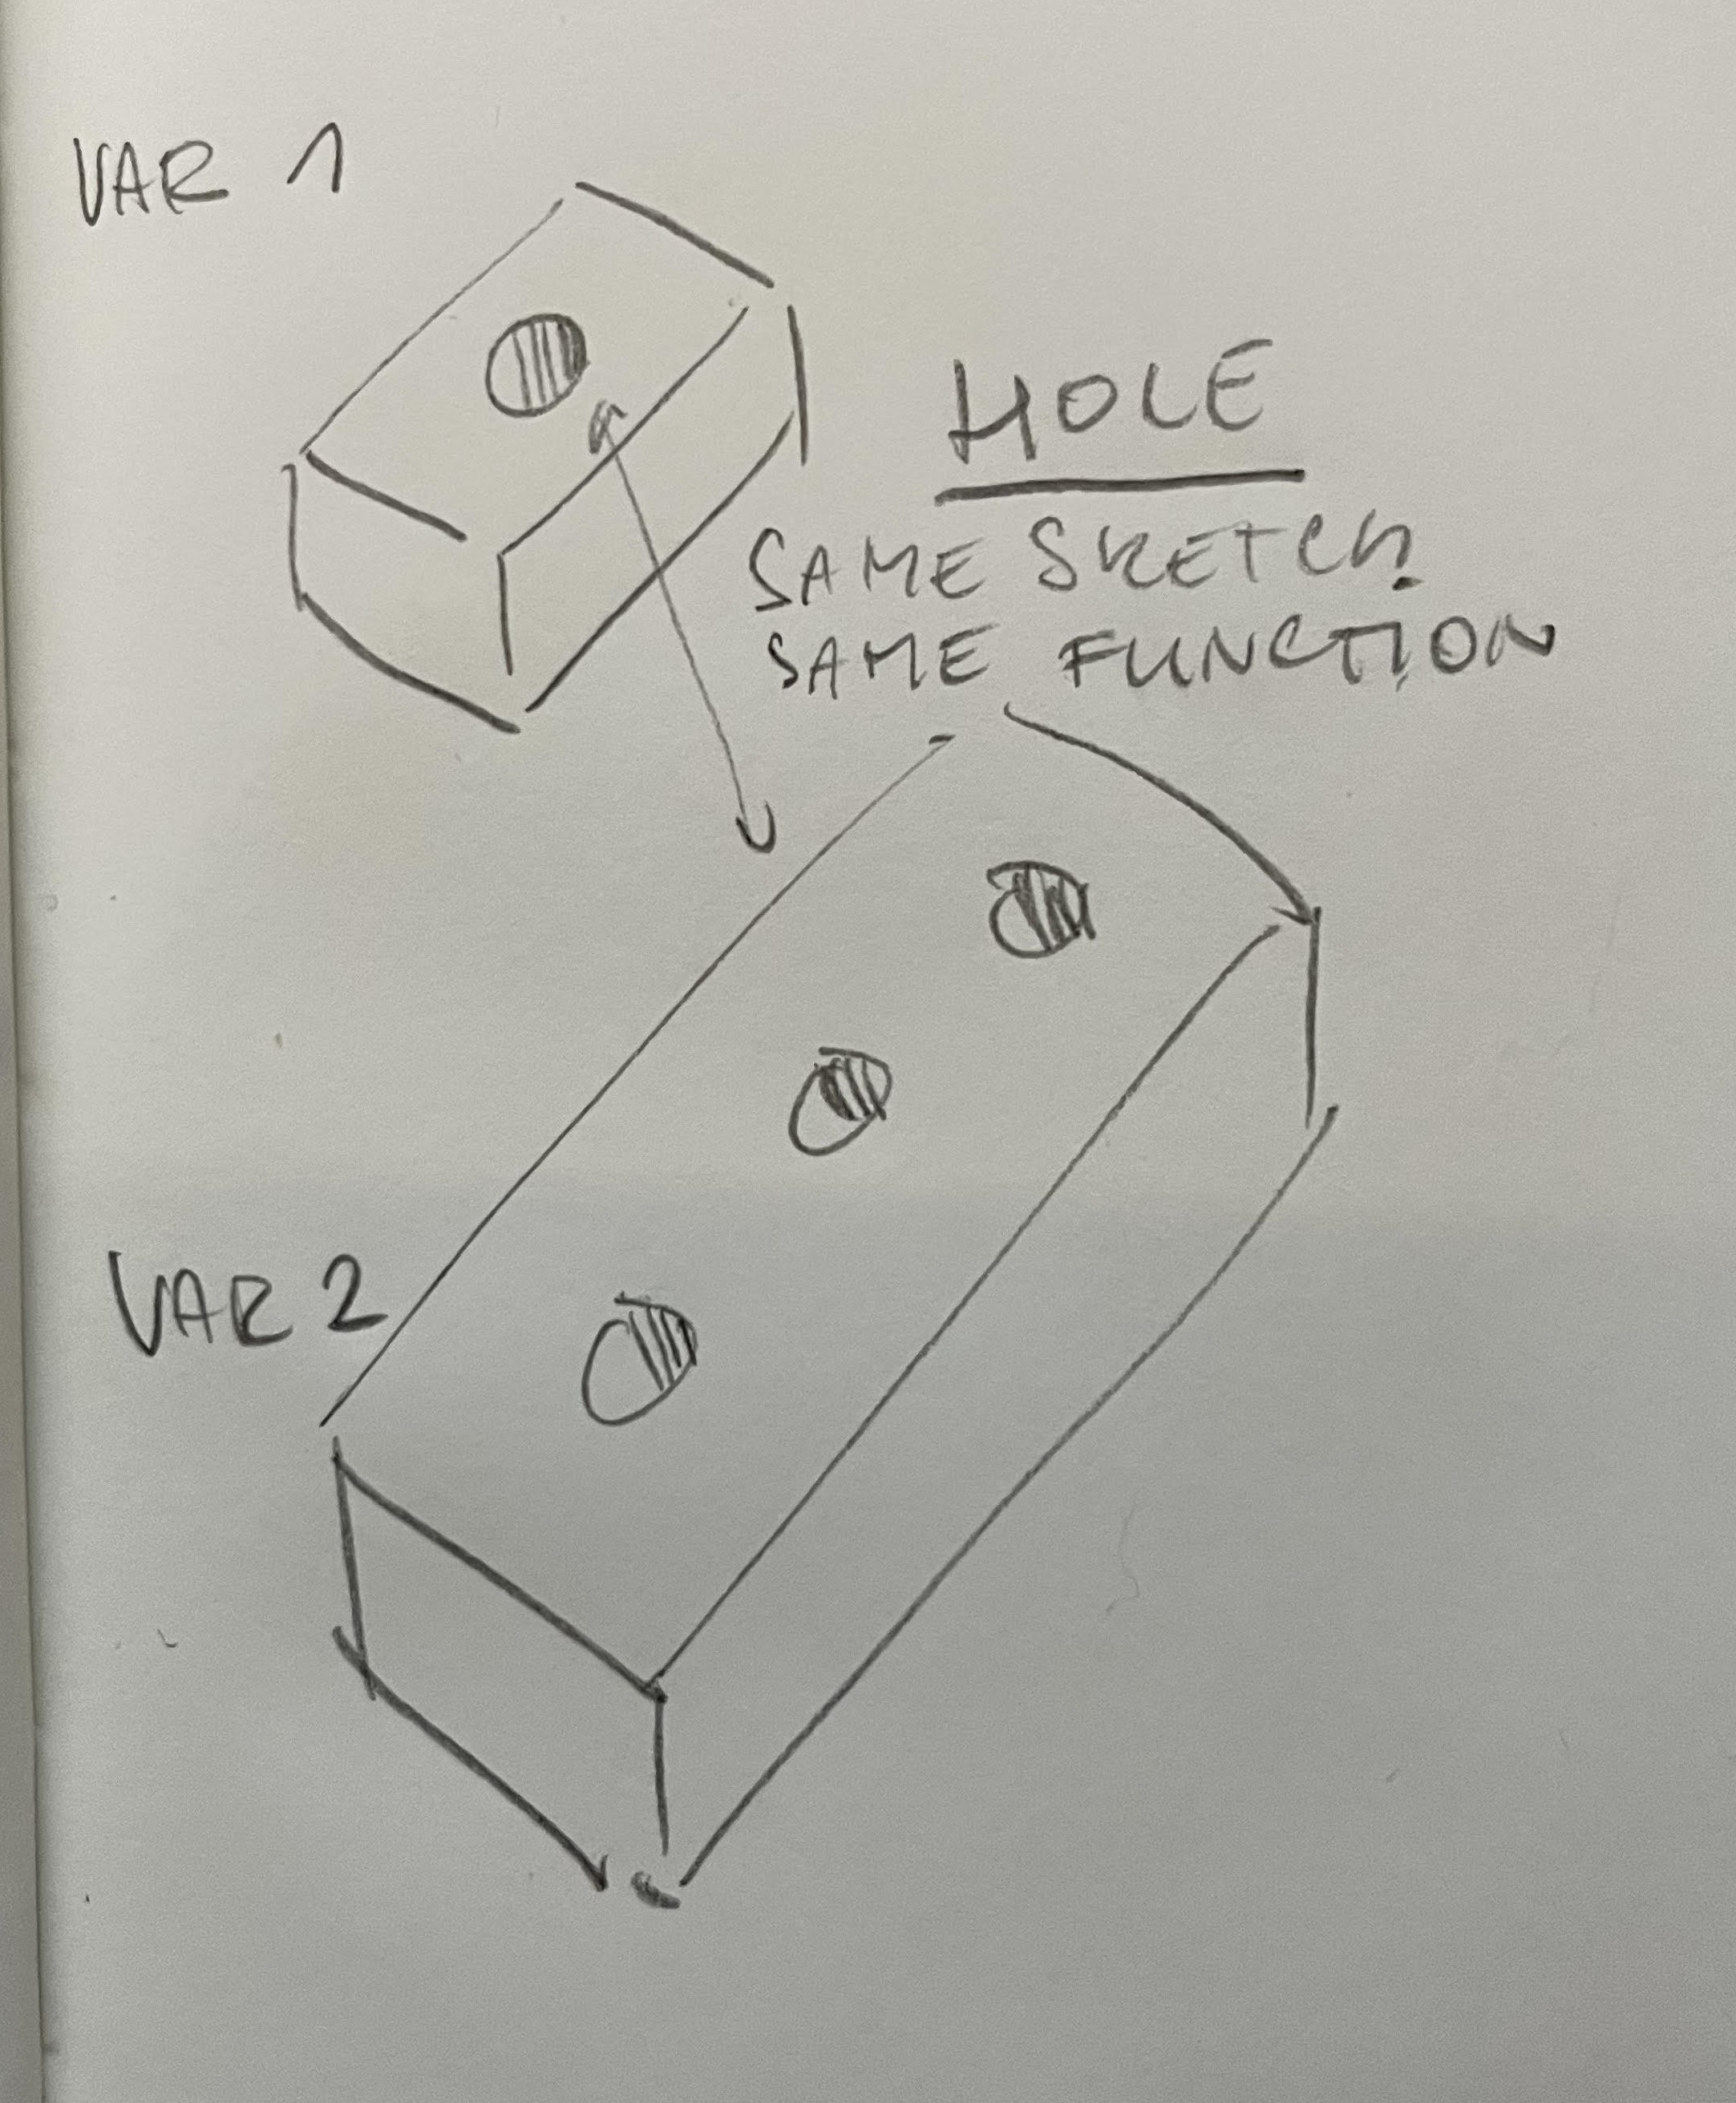 VAR 1
HOLE
SAME SKETCH
SAME FUNCTION
VAR 2